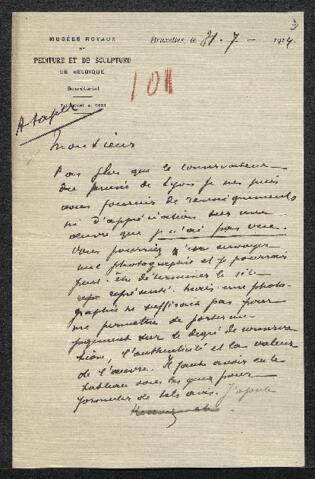 3
MUSÉES ROYAUX
DE
PEINTURE ET DE SCULPTURE
DE BELGIQUE
Secrétariat
Bruxelles, le 31-7-1924
101
A taper
Monsieur
Pas plus que le conservateur
du musée de Lyon je ne puis
vous fournir de renseignements
ni d'appréciation sur une
œuvre que je n'ai pas vue.
Vous pourriez m'en envoyer
une photographie et je pourrais
peut-être déterminer le site
représenté. Mais une photo-
graphie ne suffirait pas pour
me permettre de porter un
jugement sur le degré de conserva-
tion, l'authenticité et la valeur
de l'œuvre. Il faut avoir eu le
tableau sous les yeux pour
formuler de tels avis. J'ajoute